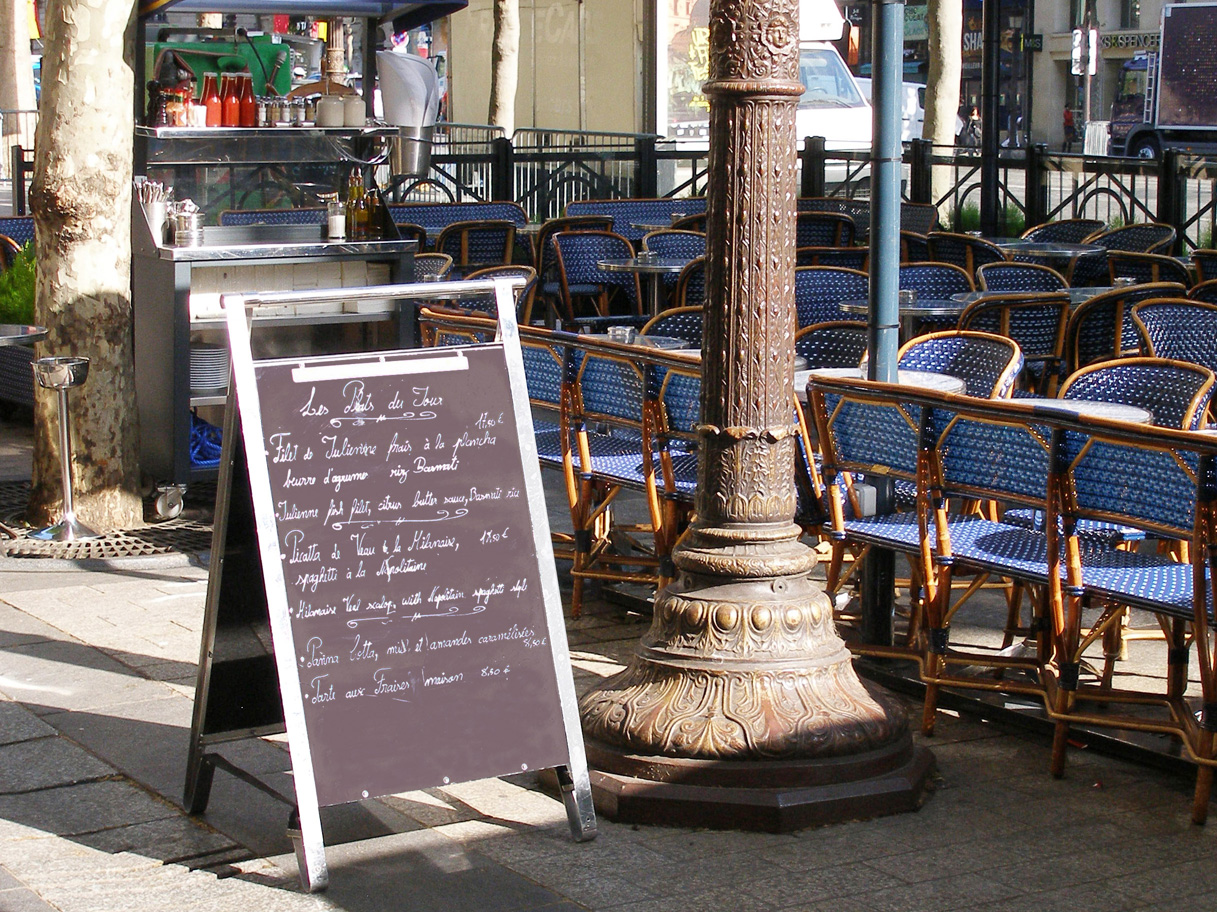 Les Plats du Jour
17,50 €
Filet de Julienne frais à la plancha
beurre d'agrume riz Basmati
Julienne fish filet, citrus butter sauce, Basmati rice
Picatta de Veau à la Milanaise, 17,50 €
spaghetti à la Napolitaine
Milanaise Veal scalop, with Napolitain spaghetti
Panna Cotta, miel et amandes caramélisées
8,50 €
Tarte aux Fraises maison 8.50 €